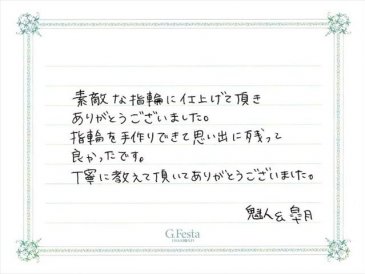 素敵な指輪に仕上げて頂き
ありがとうございました。
指輪を手作りできて思い出に残って
良かったです。
丁寧に教えて頂いてありがとうございました。
魁人&皐月
G.Festa